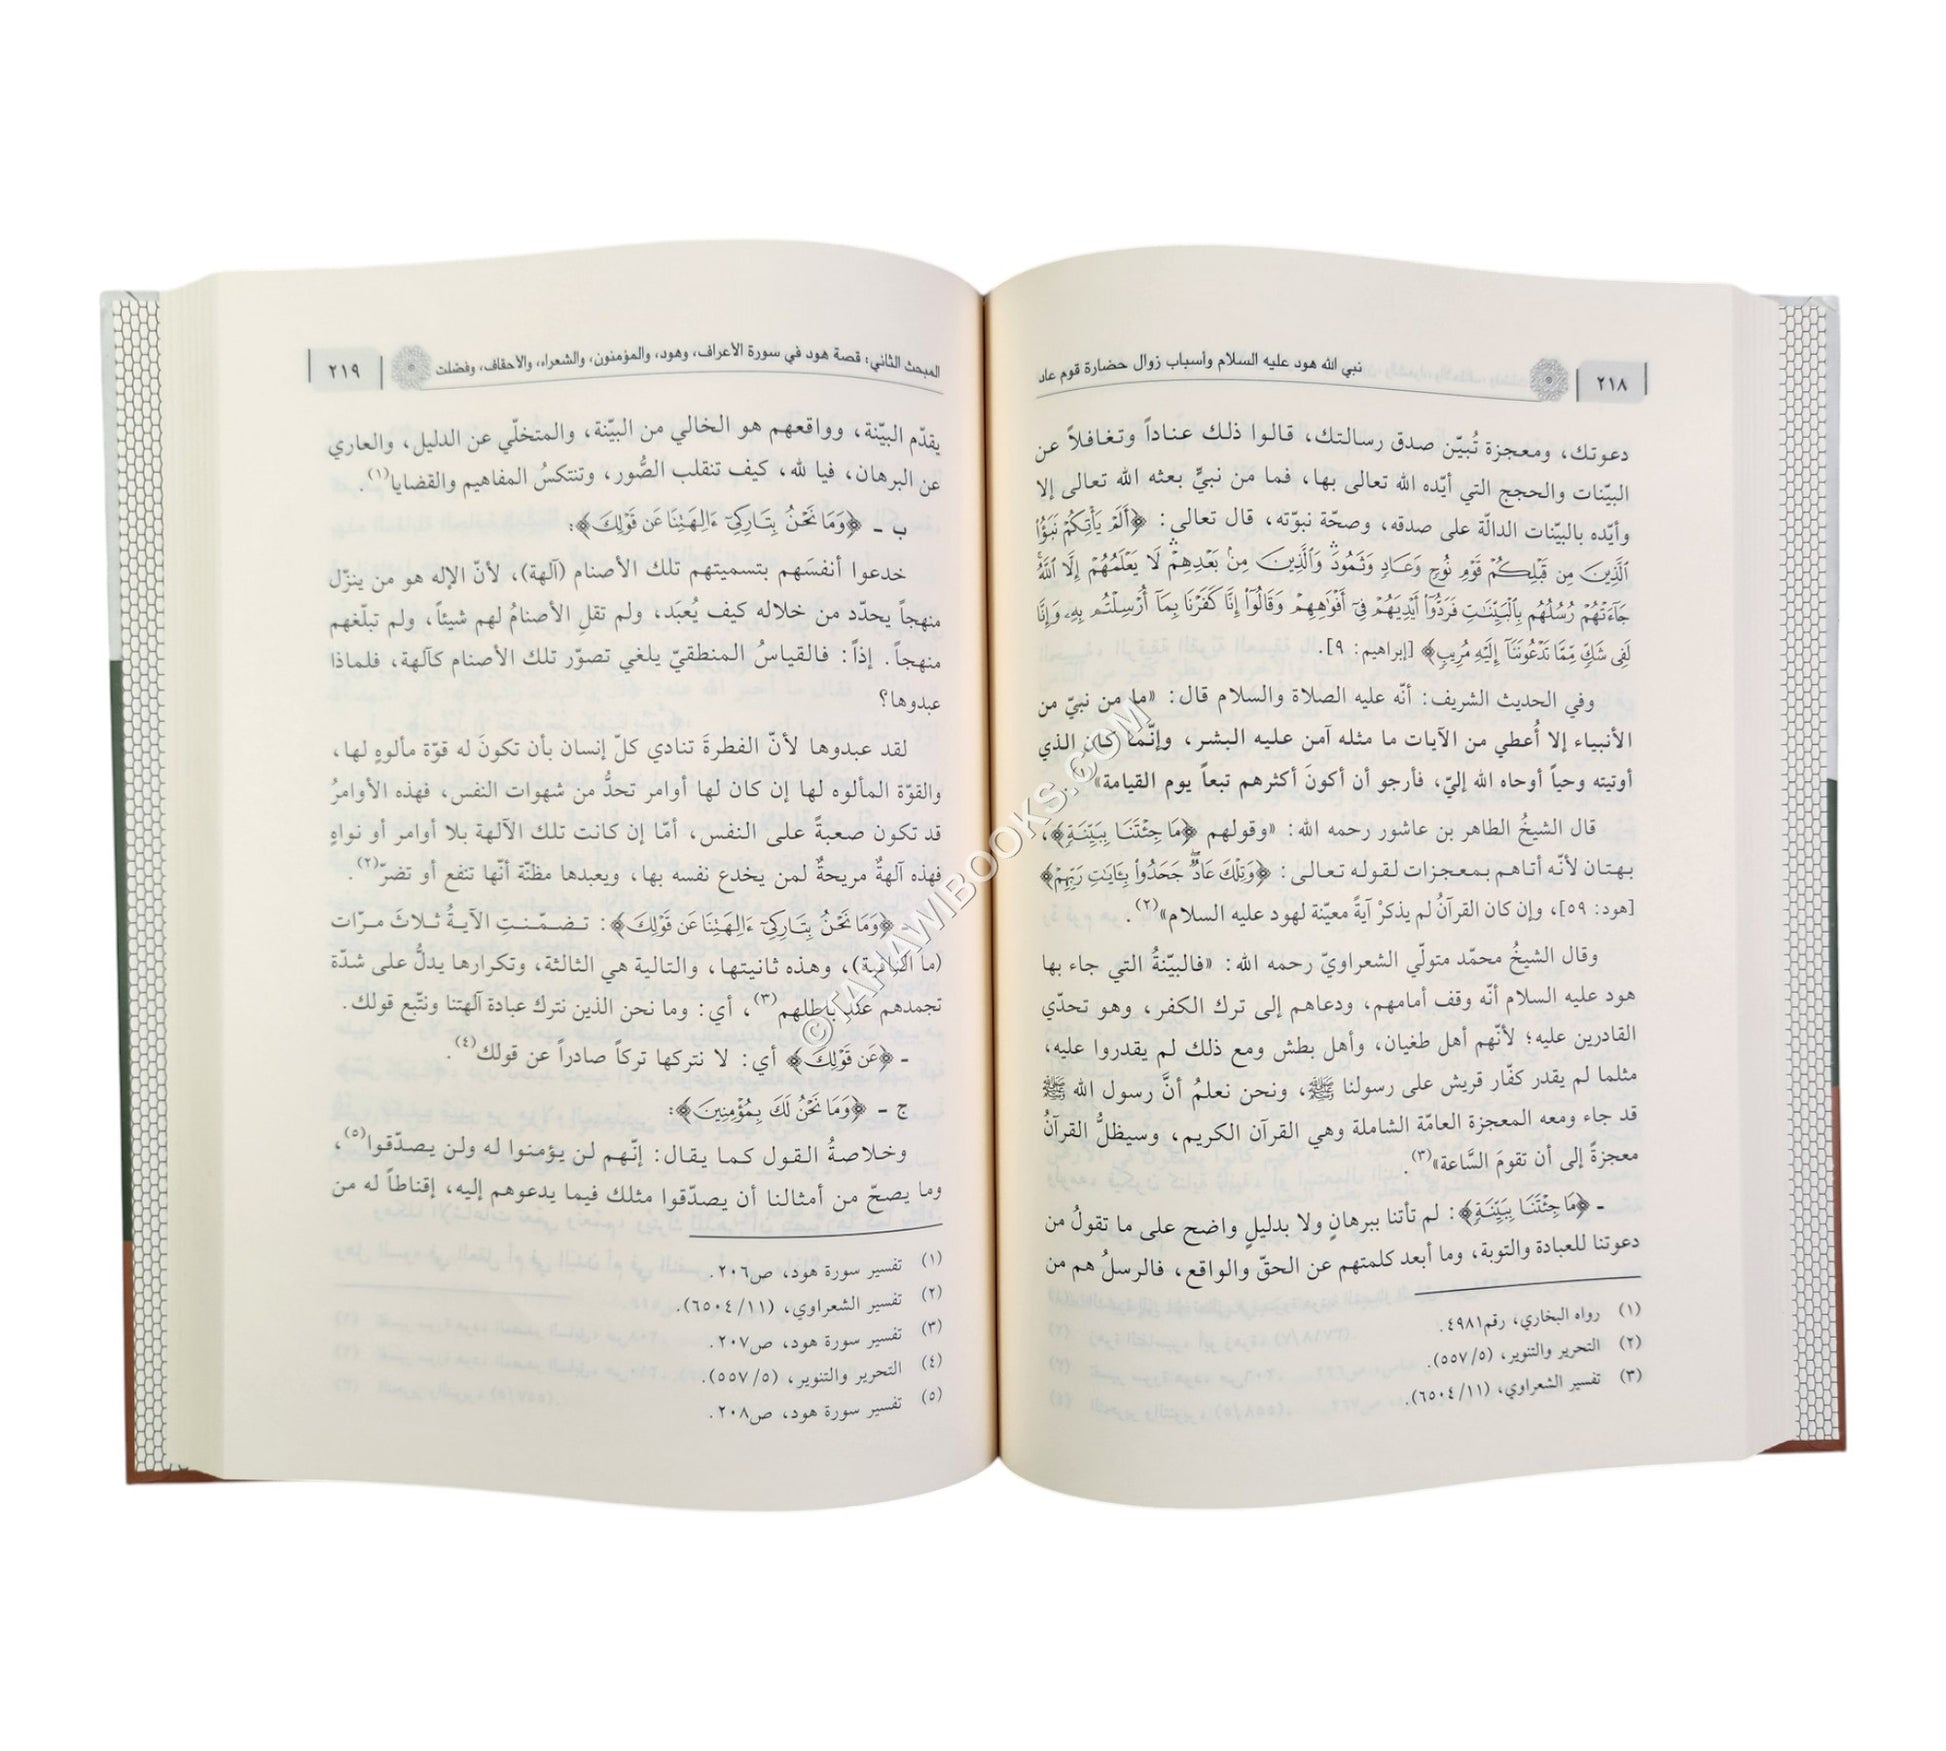 ٢١٨
نبي الله هود عليه السلام وأسباب زوال حضارة قوم عاد
دعوتك، ومعجزة تُبيّن صدق رسالتك، قالوا ذلك عناداً وتغافلاً عن
البيّنات والحجج التي أيّده الله تعالى بها، فما من نبيٍّ بعثه الله تعالى إلا
وأيّده بالبيّنات الدالّة على صدقه، وصحّة نبوّته، قال تعالى: ﴿أَلَمْ يَأْتِكُمْ نَبَؤُا۟
ٱلَّذِينَ مِن قَبْلِكُمْ قَوْمِ نُوحٍ وَعَادٍ وَثَمُودَ ۛ وَٱلَّذِينَ مِنۢ بَعْدِهِمْ ۛ لَا يَعْلَمُهُمْ إِلَّا ٱللَّهُ ۚ
جَآءَتْهُمْ رُسُلُهُم بِٱلْبَيِّنَـٰتِ فَرَدُّوٓا۟ أَيْدِيَهُمْ فِىٓ أَفْوَٰهِهِمْ وَقَالُوٓا۟ إِنَّا كَفَرْنَا بِمَآ أُرْسِلْتُم بِهِۦ وَإِنَّا
لَفِى شَكٍّ مِّمَّا تَدْعُونَنَآ إِلَيْهِ مُرِيبٍ﴾ [إبراهيم: ٩].
وفي الحديث الشريف: أنّه عليه الصلاة والسلام قال: «ما من نبيّ من
الأنبياء إلا أُعطي من الآيات ما مثله آمن عليه البشر، وإنّما كان الذي
أوتيته وحياً أوحاه الله إليّ، فأرجو أن أكونَ أكثرهم تبعاً يوم القيامة»
قال الشيخُ الطاهر بن عاشور رحمه الله: «وقولهم ﴿مَا جِئْتَنَا بِبَيِّنَةٍ﴾،
بهتان لأنّه أتاهم بمعجزات لقوله تعالى: ﴿وَتِلْكَ عَادٌ ۖ جَحَدُوا۟ بِـَٔايَـٰتِ رَبِّهِمْ﴾
[هود: ٥٩]، وإن كان القرآنُ لم يذكرْ آيةً معيّنة لهود عليه السلام»(٢).
وقال الشيخُ محمّد متولّي الشعراويّ رحمه الله: «فالبيّنةُ التي جاء بها
هود عليه السلام أنّه وقف أمامهم، ودعاهم إلى ترك الكفر، وهو تحدّي
القادرين عليه؛ لأنّهم أهل طغيان، وأهل بطش ومع ذلك لم يقدروا عليه،
مثلما لم يقدر كفّار قريش على رسولنا ﷺ، ونحن نعلمُ أنَّ رسول الله ﷺ
قد جاء ومعه المعجزة العامّة الشاملة وهي القرآن الكريم، وسيظلُّ القرآنُ
معجزةً إلى أن تقومَ السَّاعة»(٣).
ـ ﴿مَا جِئْتَنَا بِبَيِّنَةٍ﴾: لم تأتنا ببرهانٍ ولا بدليلٍ واضح على ما تقولُ من
دعوتنا للعبادة والتوبة، وما أبعد كلمتهم عن الحقّ والواقع، فالرسلُ هم من
(١) رواه البخاري، رقم٤٩٨١.
(٢) التحرير والتنوير، (٥/٥٥٧).
(٣) تفسير الشعراوي، (١١/٦٥٠٤).
المبحث الثاني: قصة هود في سورة الأعراف، وهود، والمؤمنون، والشعراء، والأحقاف، وفصّلت
٢١٩
يقدّم البيّنة، وواقعهم هو الخالي من البيّنة، والمتخلّي عن الدليل، والعاري
عن البرهان، فيا لله، كيف تنقلب الصُّور، وتنتكسُ المفاهيم والقضايا(١).
ب ـ ﴿وَمَا نَحْنُ بِتَارِكِىٓ ءَالِهَتِنَا عَن قَوْلِكَ﴾:
خدعوا أنفسَهم بتسميتهم تلك الأصنام (آلهة)، لأنّ الإله هو من ينزّل
منهجاً يحدّد من خلاله كيف يُعبَد، ولم تقلِ الأصنامُ لهم شيئاً، ولم تبلّغهم
منهجاً. إذاً: فالقياسُ المنطقيّ يلغي تصوّر تلك الأصنام كآلهة، فلماذا
عبدوها؟
لقد عبدوها لأنّ الفطرةَ تنادي كلّ إنسان بأن تكونَ له قوّة مألوهٍ لها،
والقوّة المألوه لها إن كان لها أوامر تحدُّ من شهوات النفس، فهذه الأوامرُ
قد تكون صعبةً على النفس، أمّا إن كانت تلك الآلهة بلا أوامر أو نواهٍ
فهذه آلهةٌ مريحةٌ لمن يخدع نفسه بها، ويعبدها مظنّة أنّها تنفع أو تضرّ(٢).
ـ ﴿وَمَا نَحْنُ بِتَارِكِىٓ ءَالِهَتِنَا عَن قَوْلِكَ﴾: تضمّنتِ الآيةُ ثلاثَ مرّات
(ما النافية)، وهذه ثانيتها، والتالية هي الثالثة، وتكرارها يدلُّ على شدّة
تجمدهم على باطلهم(٣)، أي: وما نحن الذين نترك عبادة آلهتنا ونتّبع قولك.
ـ ﴿عَن قَوْلِكَ﴾ أي: لا نتركها تركاً صادراً عن قولك(٤).
ج ـ ﴿وَمَا نَحْنُ لَكَ بِمُؤْمِنِينَ﴾:
وخلاصةُ القول كما يقال: إنّهم لن يؤمنوا له ولن يصدّقوا(٥)،
وما يصحّ من أمثالنا أن يصدّقوا مثلك فيما يدعوهم إليه، إقناطاً له من
(١) تفسير سورة هود، ص٢٠٦.
(٢) تفسير الشعراوي، (١١/٦٥٠٤).
(٣) تفسير سورة هود، ص٢٠٧.
(٤) التحرير والتنوير، (٥/٥٥٧).
(٥) تفسير سورة هود، ص٢٠٨.